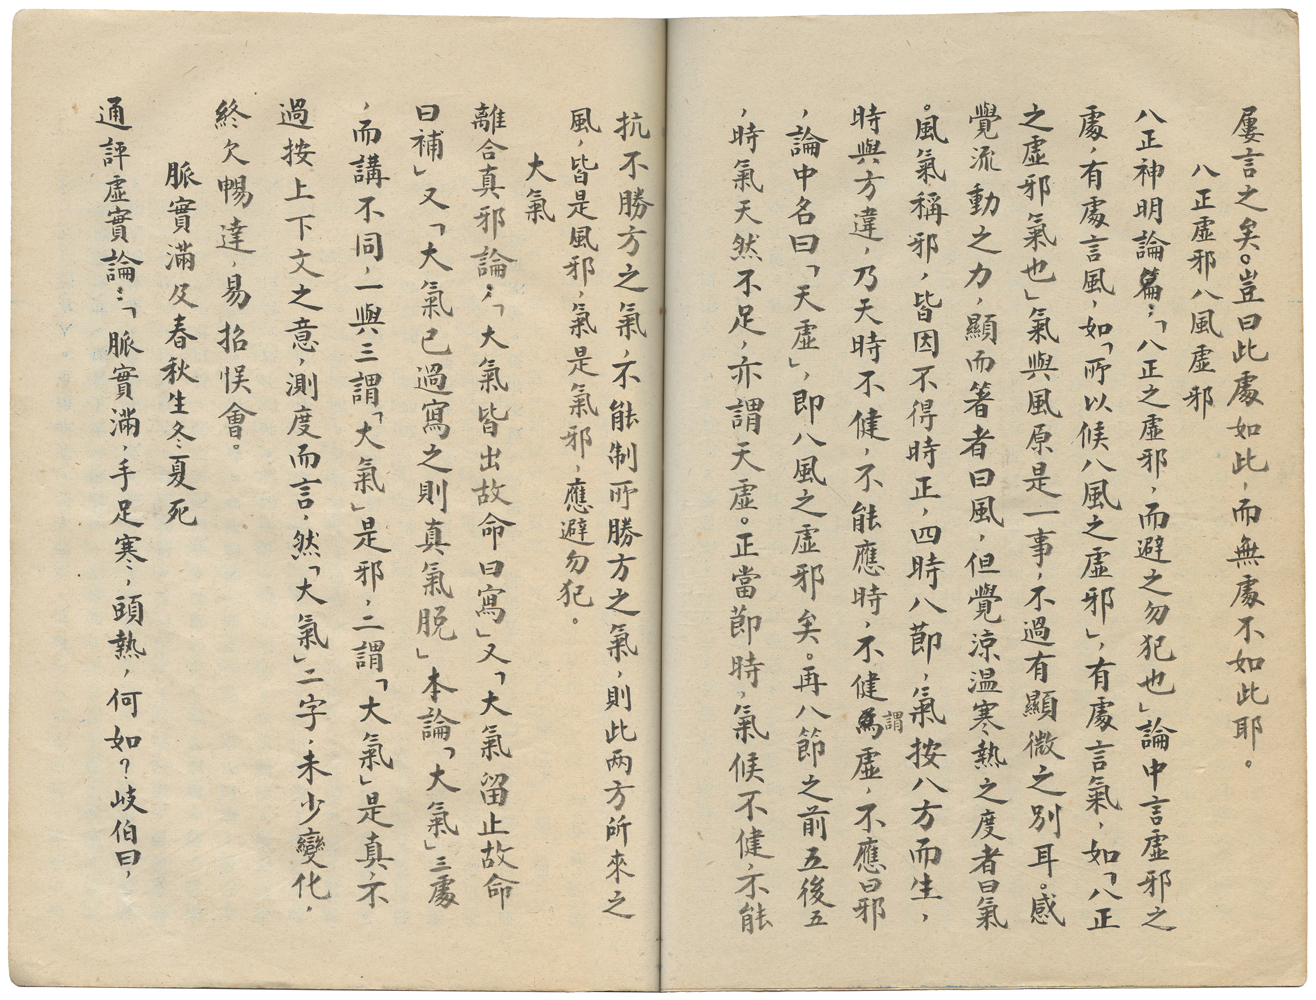 屢言之矣。豈曰此處如此，而無處不如此耶。
八正虛邪八風虛邪
八正神明論篇：「八正之虛邪，而避之勿犯也」論中言虛邪之
處，有處言風，如「所以候八風之虛邪」，有處言氣，如「八正
之虛邪氣也」氣與風原是一事，不過有顯微之別耳。感
覺流動之力，顯而著者曰風，但覺涼溫寒熱之度者曰氣
。風氣稱邪，皆因不得時正，四時八節，氣按八方而生，
時與方違，乃天時不健，不能應時，不健為謂虛，不應曰邪
，論中名曰「天虛」，即八風之虛邪矣。再八節之前五後五
，時氣天然不足，亦謂天虛。正當節時，氣候不健，不能
抗不勝方之氣，不能制所勝方之氣，則此两方所來之
風，皆是風邪，氣是氣邪，應避勿犯。
大氣
離合真邪論：「大氣皆出故命曰寫」又「大氣留止故命
曰補」又「大氣已過寫之則真氣脫」本論「大氣」三處
，而講不同，一與三謂「大氣」是邪，二謂「大氣」是真，不
過按上下文之意，測度而言，然「大氣」二字，未少變化，
終欠暢達，易招悮會。
脈實滿及春秋生冬夏死
通評虛實論：「脈實滿，手足寒，頭熱，何如？岐伯曰，